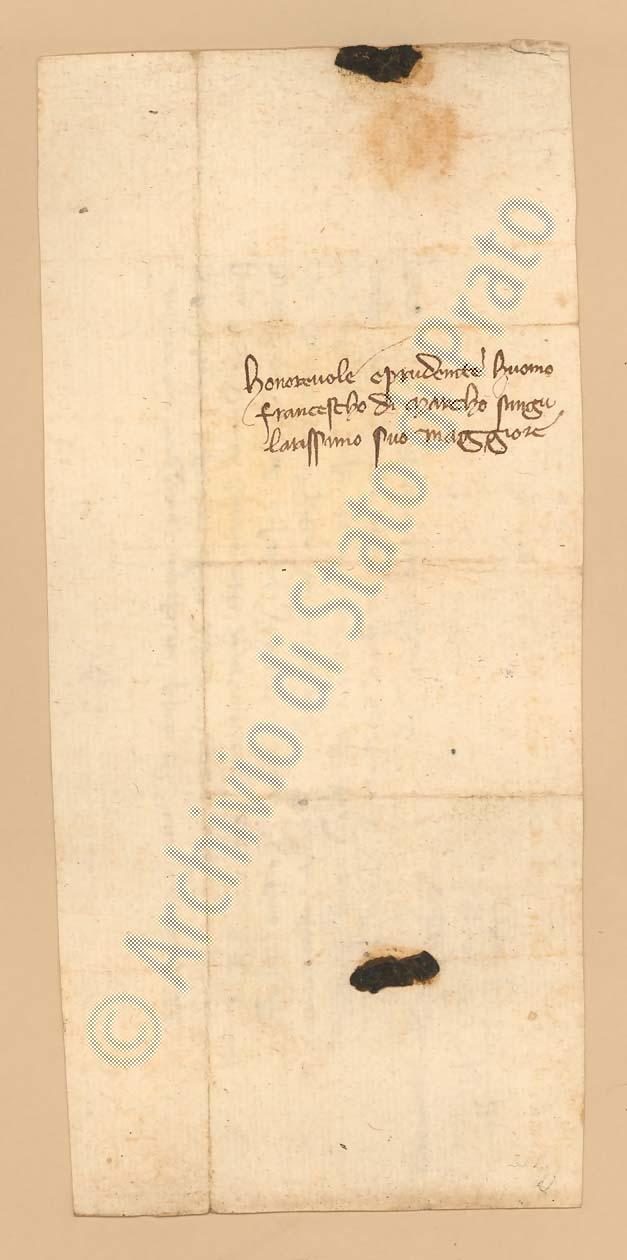 honorevole e prudente huomo
francescho di marcho singu
larissimo suo maggiore
© Archivio di Stato di Prato